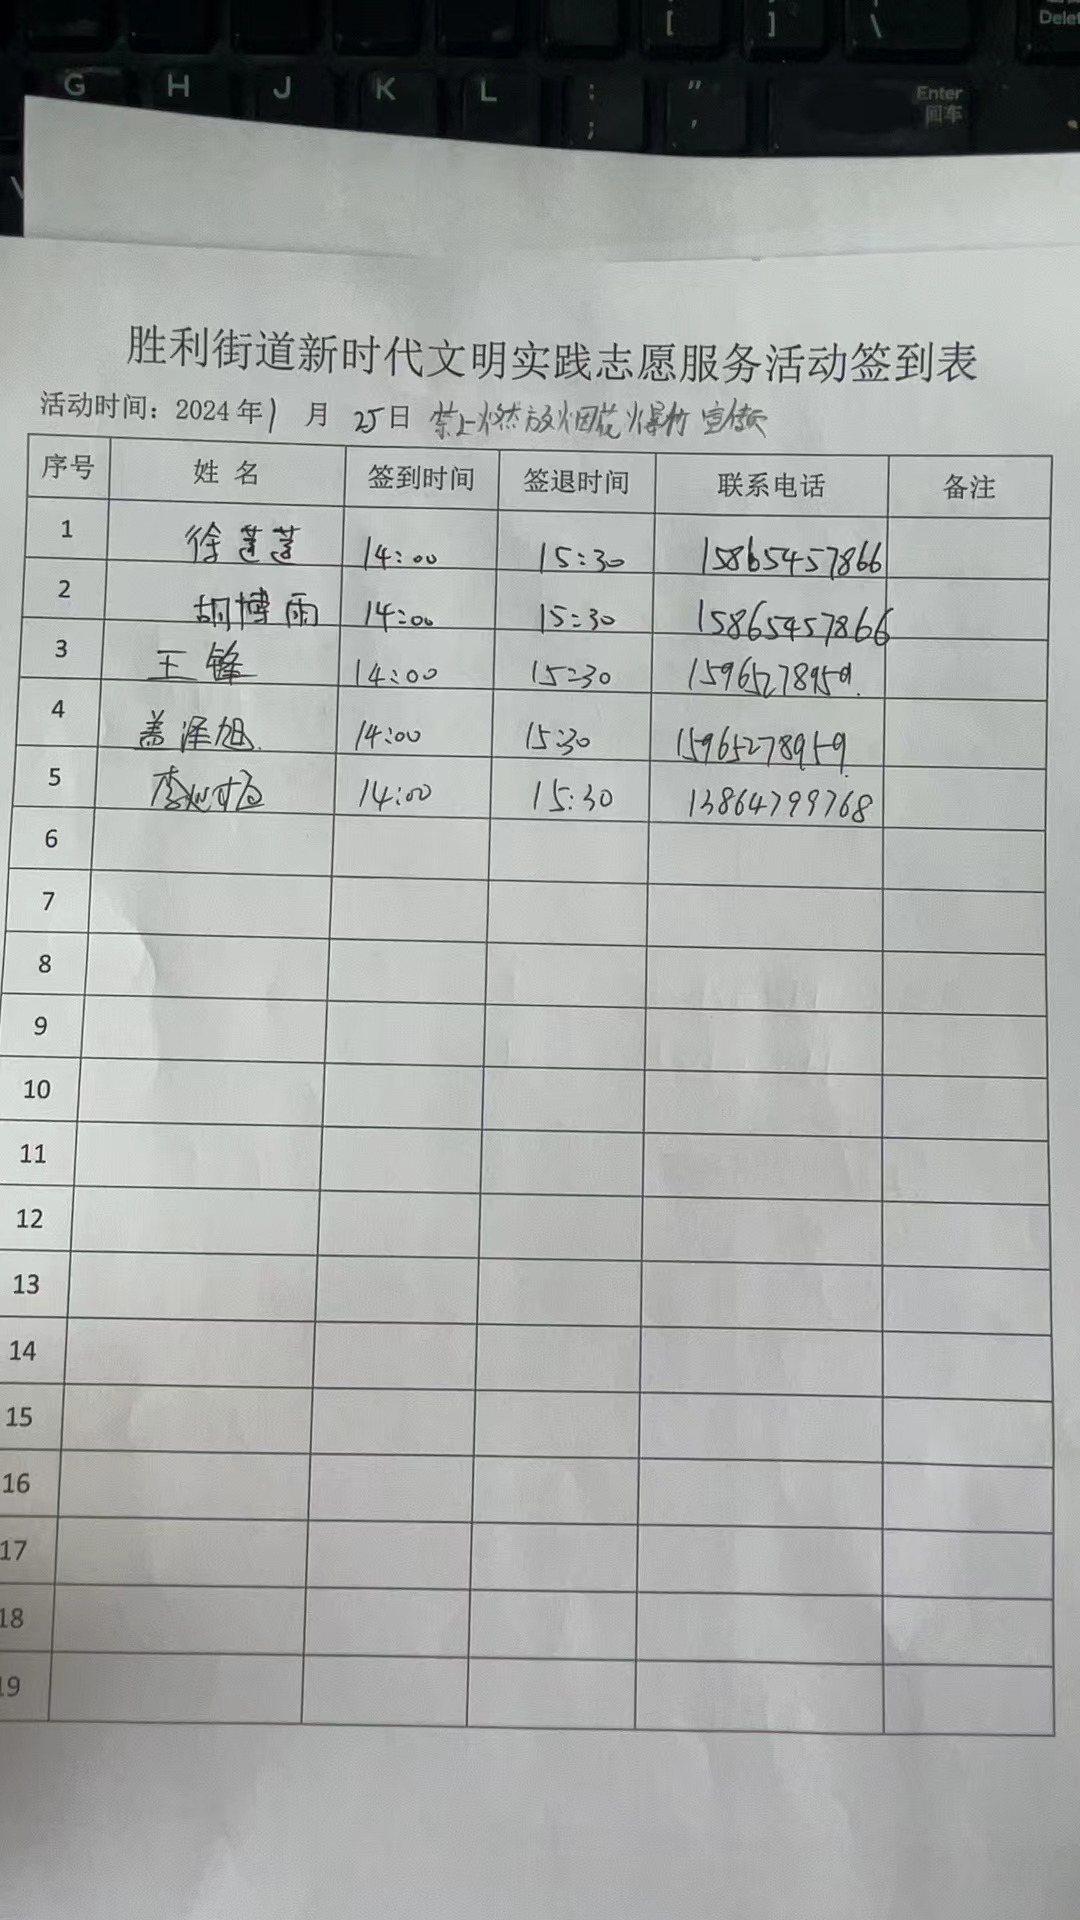 [ ] \ Delet
G H J K L : ; " ' Enter
回车
胜利街道新时代文明实践志愿服务活动签到表
活动时间：2024年1月25日 禁止燃放烟花爆竹宣传
序号 姓名 签到时间 签退时间 联系电话 备注
1 徐莲莲 14:00 15:30 15865457866
2 胡博雨 14:00 15:30 15865457866
3 王锋 14:00 15:30 15965278959
4 盖泽旭 14:00 15:30 15965278959
5 李 14:00 15:30 13864799768
6
7
8
9
10
11
12
13
14
15
16
17
18
19